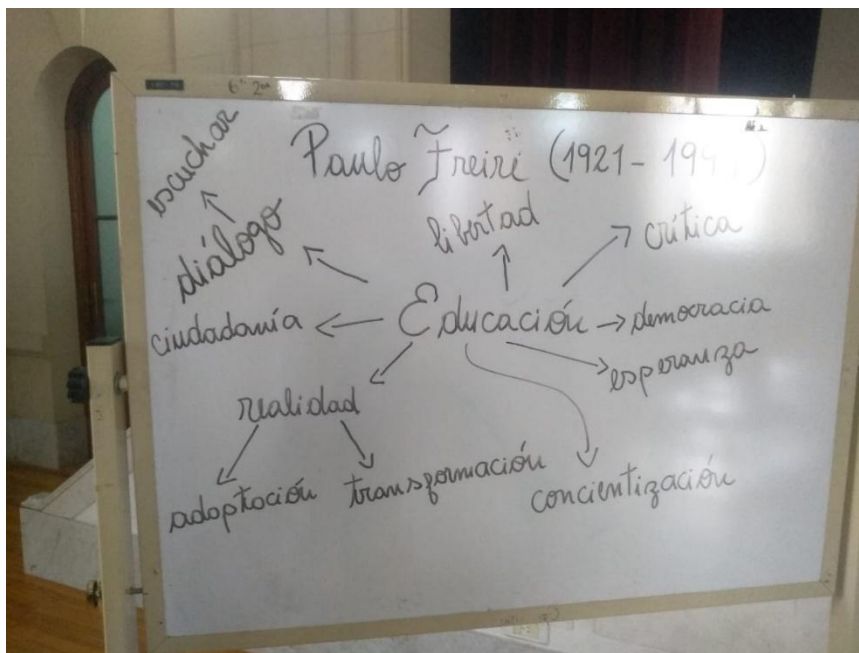 6° 2ª
Paulo Freire (1921-
escuchar
diálogo
libertad
crítica
ciudadanía
Educación
democracia
esperanza
realidad
adaptación
transformación
concientización